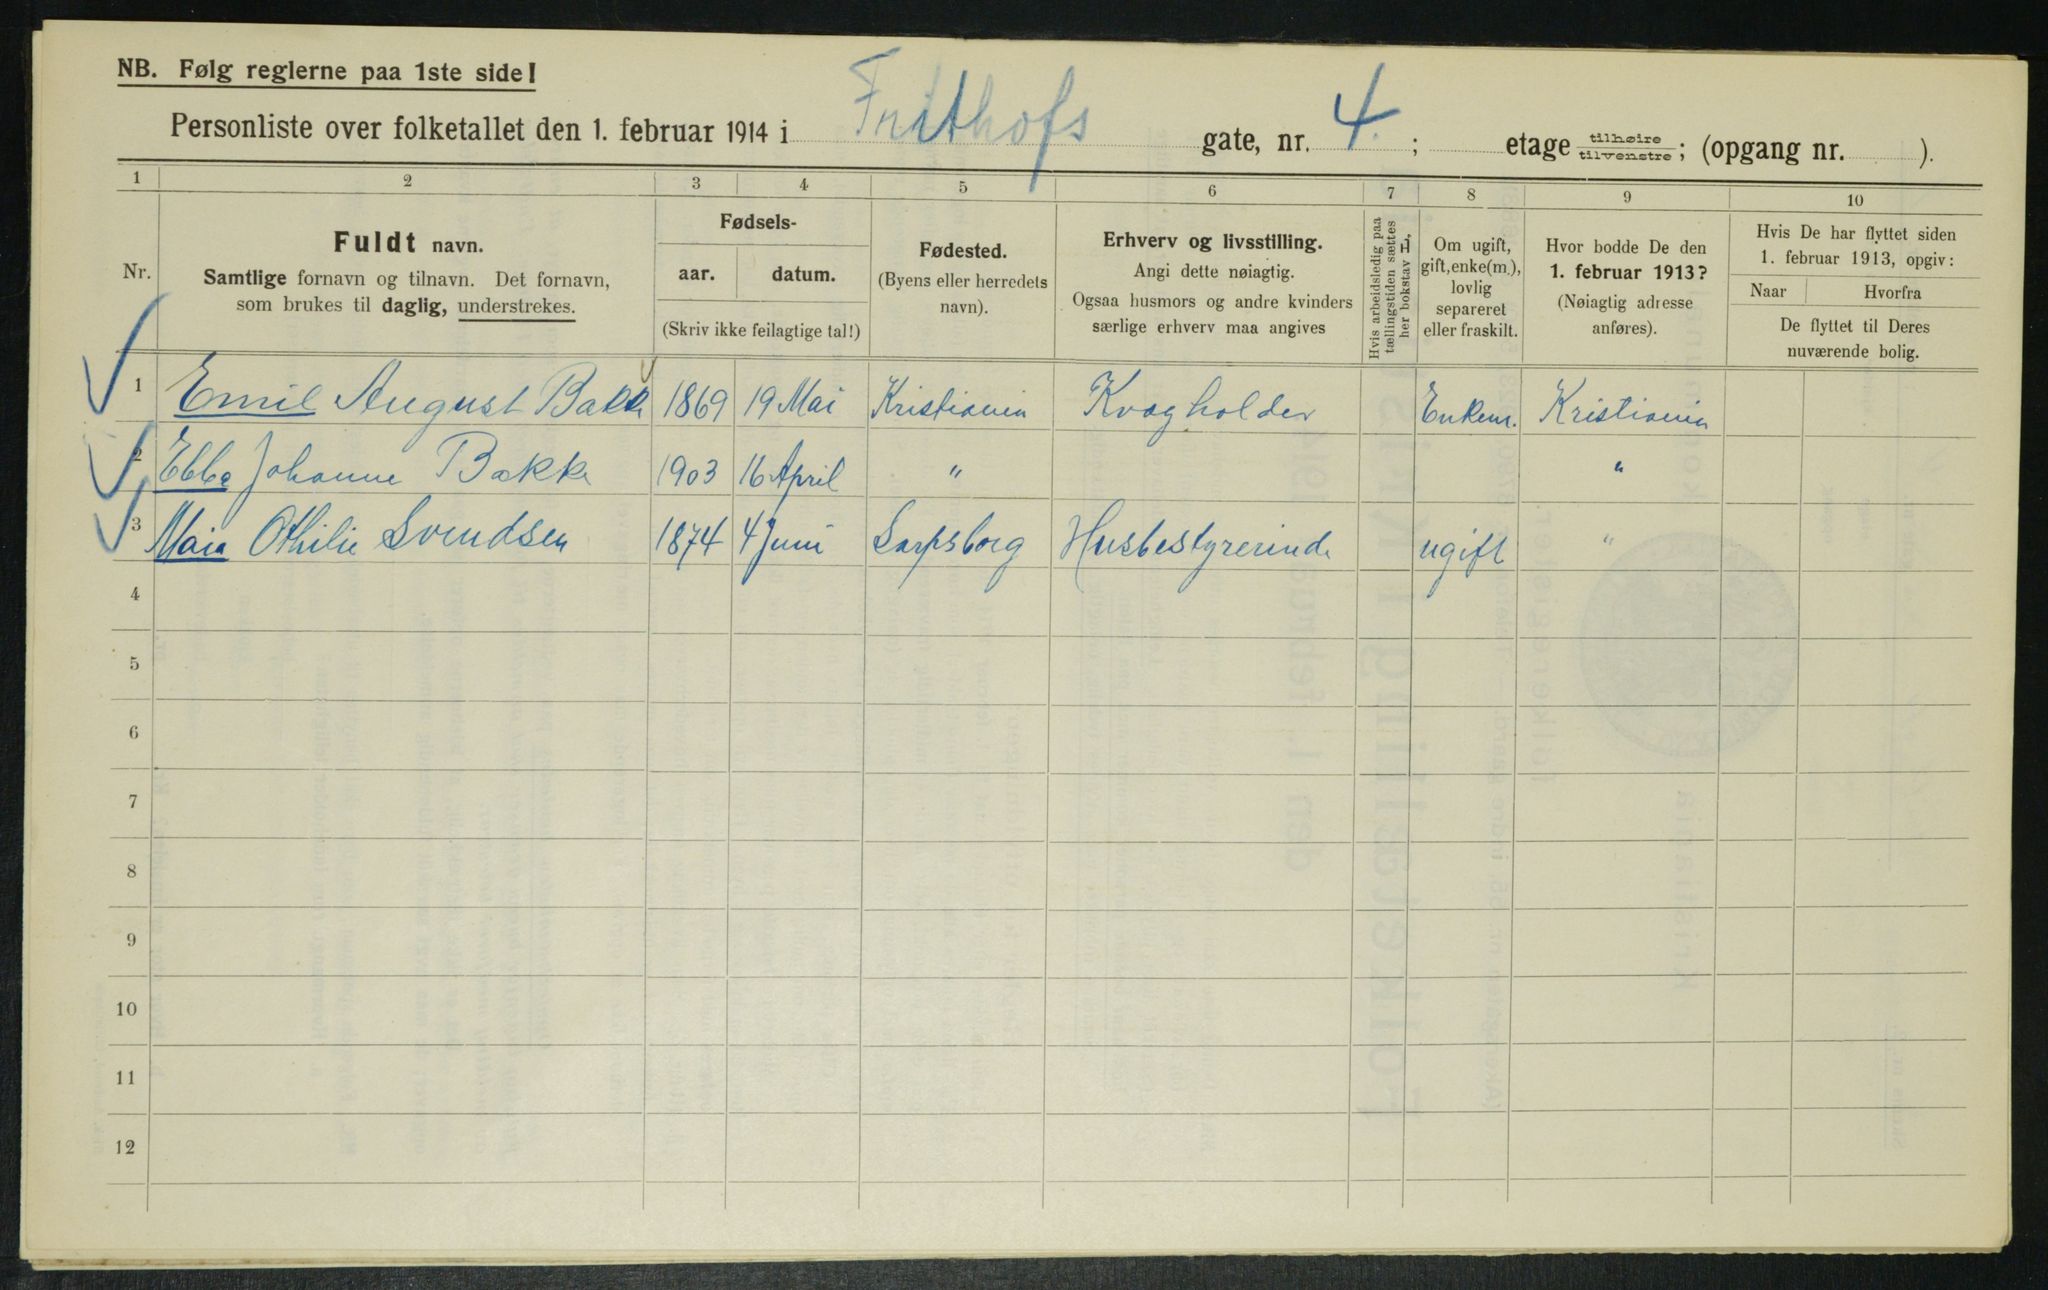 NB. Følg reglerne paa 1ste side!
Personliste over folketallet den 1. februar 1914 i Frithofs gate, nr. 4. ; etage tilhøire tilvenstre; (opgang nr. ).
1 2 3 4 5 6 7 8 9 10
Nr.
Fuldt navn.
Samtlige fornavn og tilnavn. Det fornavn,
som brukes til daglig, understrekes.
Fødsels-
aar. datum.
(Skriv ikke feilagtige tal!)
Fødested.
(Byens eller herredets
navn).
Erhverv og livsstilling.
Angi dette nøiagtig.
Ogsaa husmors og andre kvinders
særlige erhverv maa angives
Hvis arbeidsledig paa
tællingstiden sættes
her bokstav L,
Om ugift,
gift, enke(m.),
lovlig
separeret
eller fraskilt.
Hvor bodde De den
1. februar 1913?
(Nøiagtig adresse
anføres).
Hvis De har flyttet siden
1. februar 1913, opgiv:
Naar Hvorfra
De flyttet til Deres
nuværende bolig.
1 Emil August Bakke 1869 19 Mai Kristiania Kvægholder Enkem. Kristiania
2 Ebba Johanne Bakke 1903 16 April " "
3 Maia Othilie Svendsen 1874 4 Juni Sarpsborg Husbestyrerinde ugift "
4
5
6
7
8
9
10
11
12